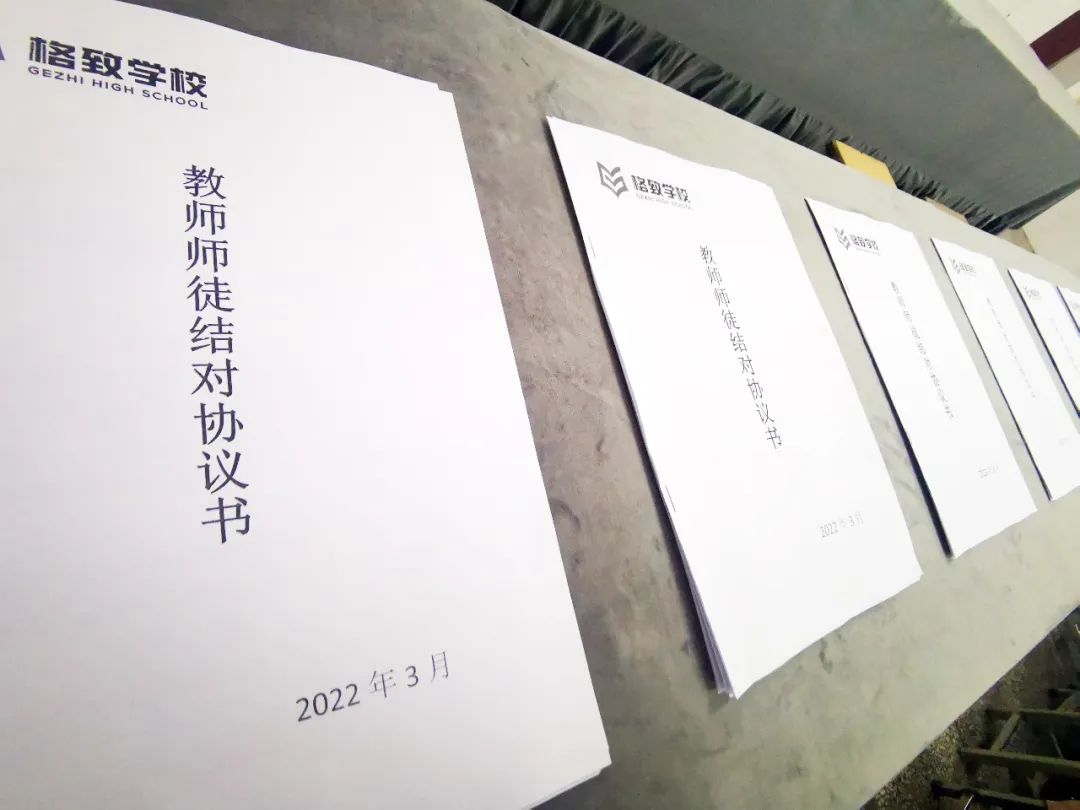 格致学校
GEZHI HIGH SCHOOL
教师师徒结对协议书
2022 年 3 月
格致学校
GEZHI HIGH SCHOOL
教师师徒结对协议书
2022 年 3 月
格致学校
教师师徒结对协议书